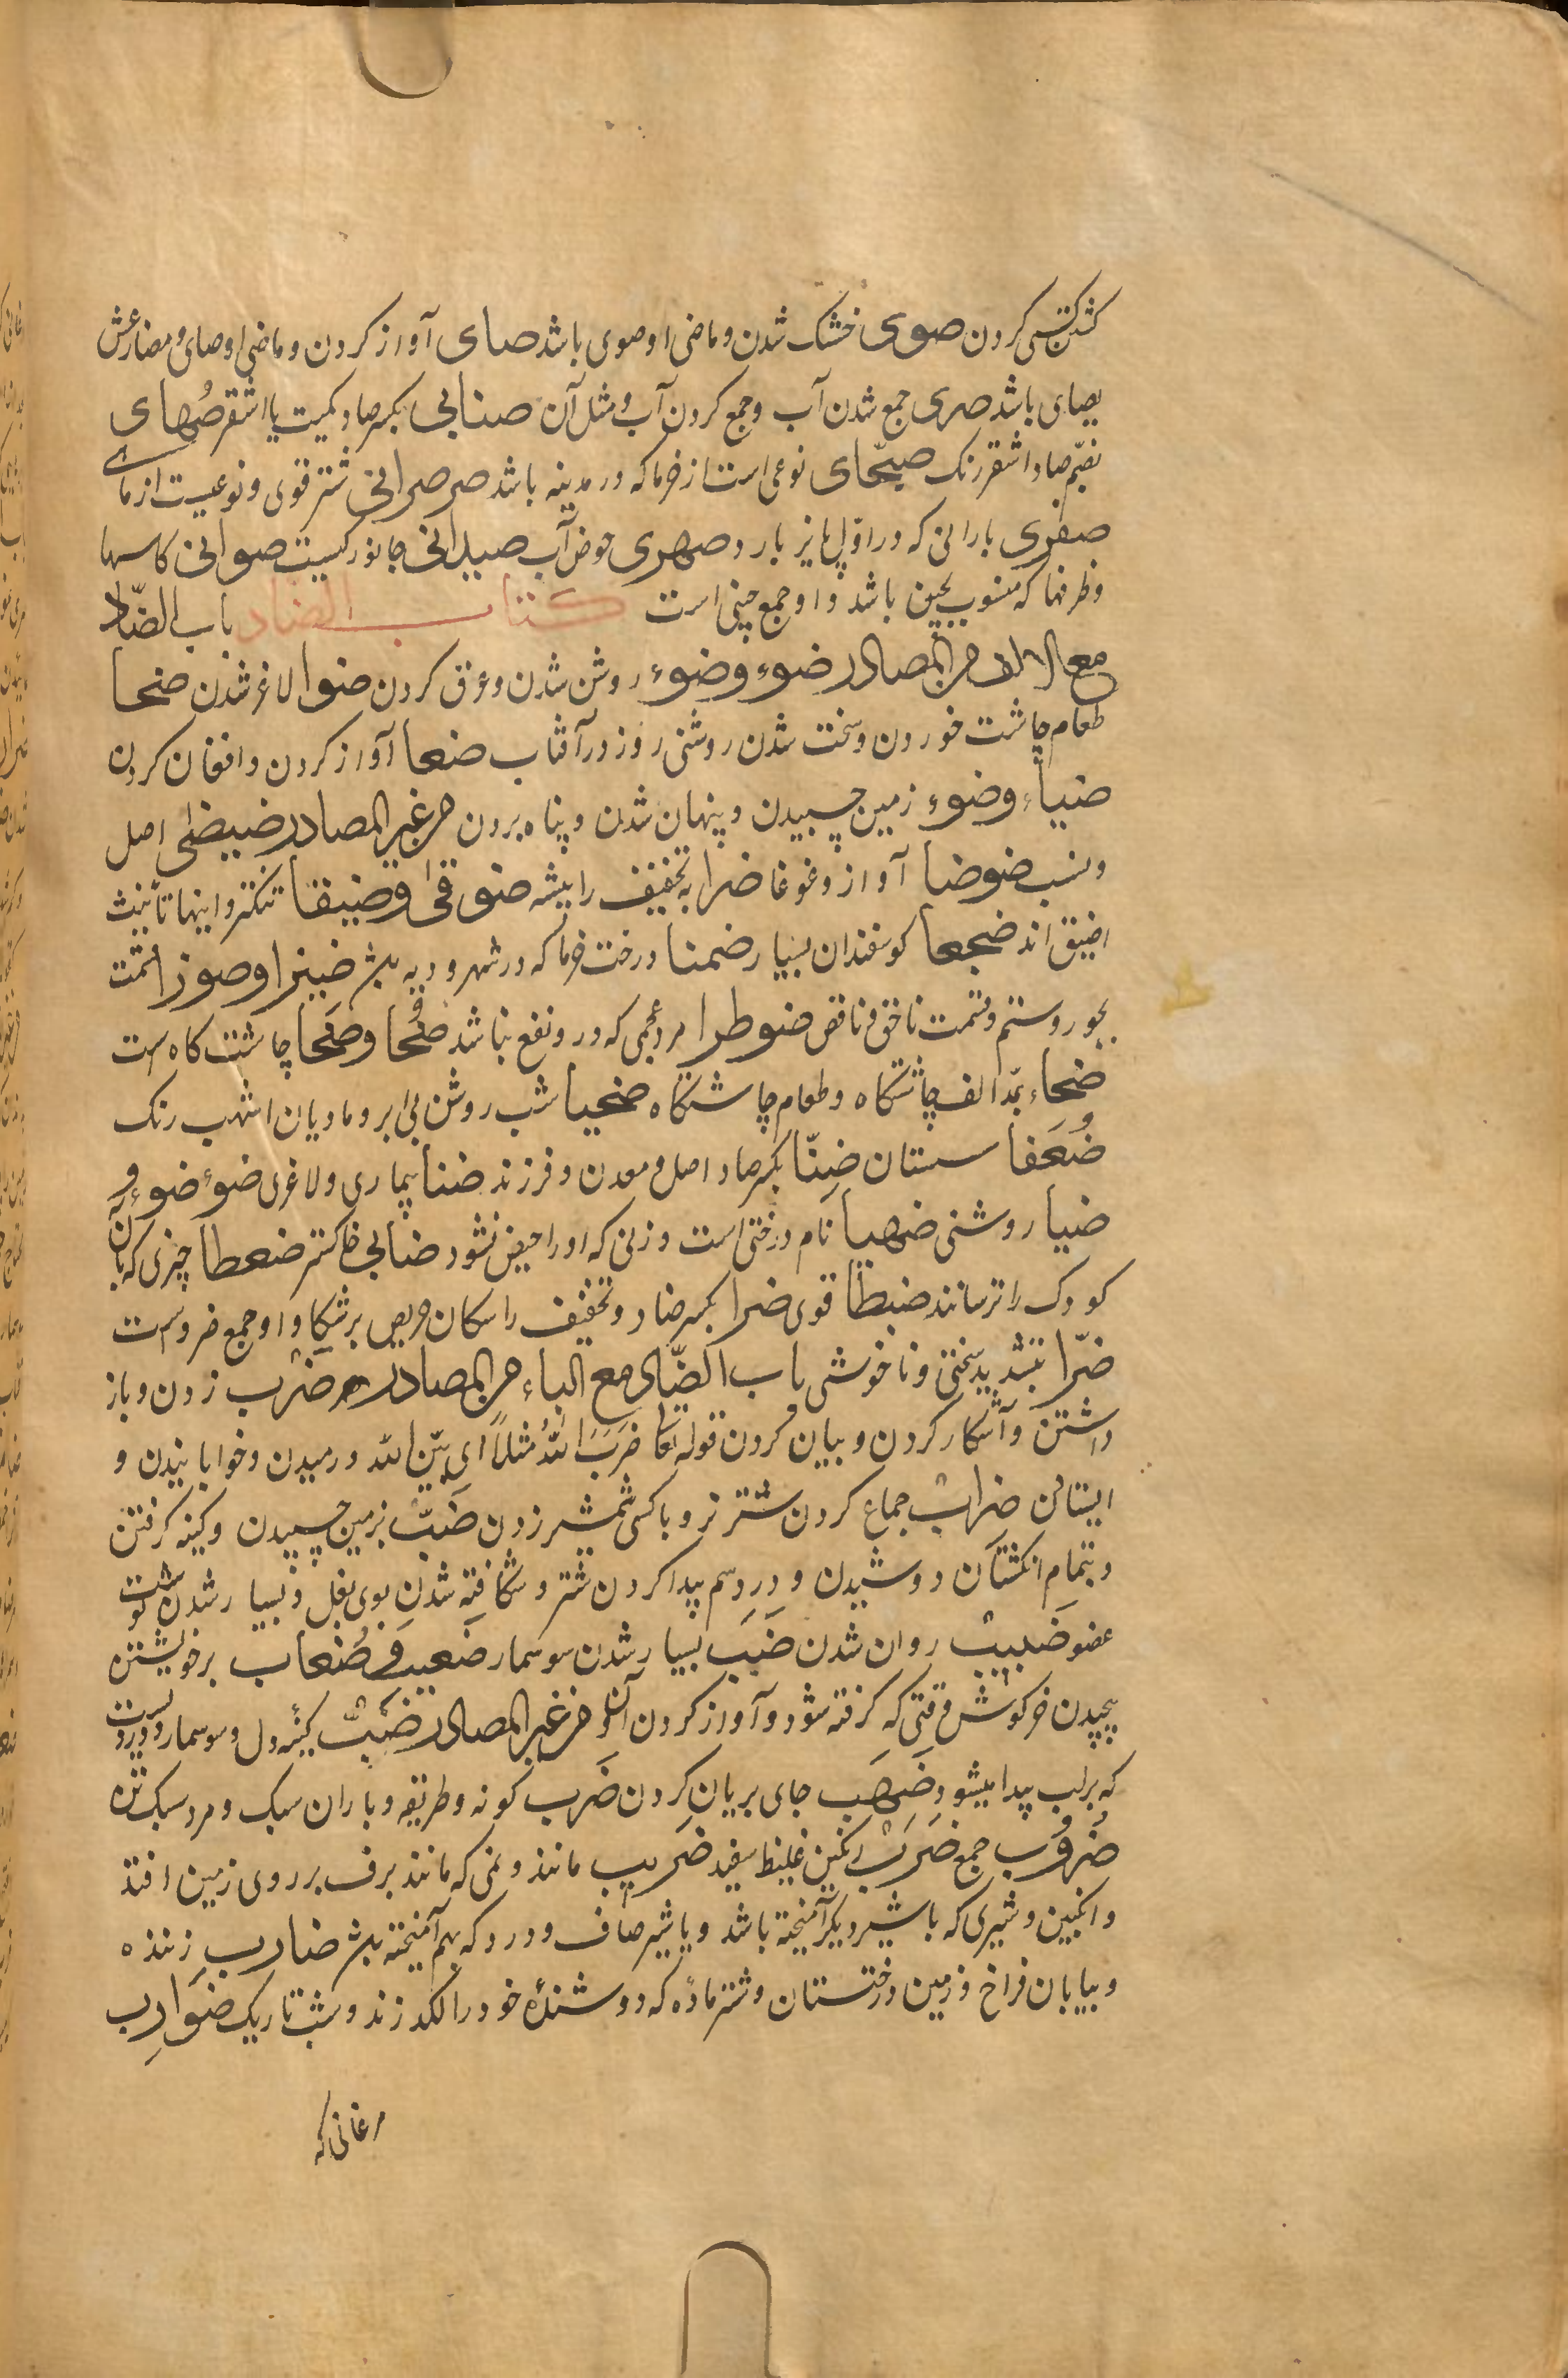 کشتن کسی کردن صوی خشک شدن و ماضی او صوی باشد صای آواز کردن و ماضی او صای و مضارعش
یصای باشد صری جمع شدن آب و جمع کردن آب و مثل آن صنابی بکسر صاد کمیت یا اشقر صُهابی
بضم صاد اشقر رنک صیحّانی نوعی است از خرما که در مدینه باشد صرصرانی شتر قوی و نوعیست از ماهی
صفری بارانی که در اول پائیز بارد صهری حوض آب صیدانی جانورکیست صوانی کاسها
و ظرفها که منسوب بچین باشد و او جمع چینی است کتاب الضاد باب الضّاد
مع الالف من المصادر ضوء و ضوء روشن شدن و عرق کردن ضنوا لاغر شدن ضحا
طعام چاشت خوردن و سخت شدن روشنی روز در آفتاب ضعا آواز کردن و افغان کردن
ضیاء و ضوء زمین چسبیدن و پنهان شدن و پناه بردن من غیر المصادر ضیضئ اصل
و نسب ضوضا آواز و غوغا ضرا به تخفیف را بیشه ضوقی و ضیقا تنکتر و اینها تأنیث
اضیق اند ضجعا کوسفندان بسیار ضمنا درخت خرما که در شهر و دیه باشد ضیزا و ضوزا قسمت
بجور و ستم و قسمت ناحق و ناقص ضوطرا مرد عجمی که در و نفع نباشد ضُحا و ضَحا چاشت کاه است
ضحاء بمد الف چاشتکاه و طعام چاشتکاه ضحیا شب روشن بی ابر و مادیان اشهب رنک
ضُعَفا سستان ضِنّا بکسر صاد اصل و معدن و فرزند ضنا بیماری و لاغری ضوء ضوء و
ضیا روشنی ضهیا نام درختی است و زنی که او را حیض نشود ضنابی خاکستر ضعطا چیزی که بآن
کودک را ترسانند ضبطا قوی ضرا بکسر ضاد و تخفیف را سکان حریص بر شکار و او جمع ضروست
ضرّا بتشدید سختی و ناخوشی باب الضّاد مع الباء من المصادر ضرب زدن و باز
داشتن و آشکار کردن و بیان کردن قوله تعا ضَرَبَ اللهُ مثلاً ای بیّن الله و رمیدن و خوابانیدن و
ایستادن ضراب جماع کردن شتر نر و با کسی شمشیر زدن ضبّ بزمین چسبیدن و کینه کرفتن
و بتمام انکشتان دوشیدن و درد سم پیدا کردن شتر و شکافته شدن بوی بغل و بسیار شدن کوشت
عضو ضبیب روان شدن ضَبَب بسیار شدن سوسمار ضعیب و ضُغاب بر خویشتن
پیچیدن خرکوش وقتی که کرفته شود و آواز کردن آن من غیر المصادر ضبّ کینه دل و سوسمار و دردیست
که بر لب پیدا میشود ضَهَب جای بریان کردن ضَرب کونه و طریقه و باران سبک و مرد سبک تن
ضروب جمع ضَرَب انکبین غلیظ سفید ضریب مانند و نمی که مانند برف بر روی زمین افتد
و انکبین و شیری که با شیر دیکر آمیخته باشد و یا شیر صاف و درد که بهم آمیخته باشد ضارب زننده
و بیابان فراخ و زمین درختستان و شتر ماده که دوشنده خود را لکد زند و شب تاریک ضَوارِب
مرغانی که